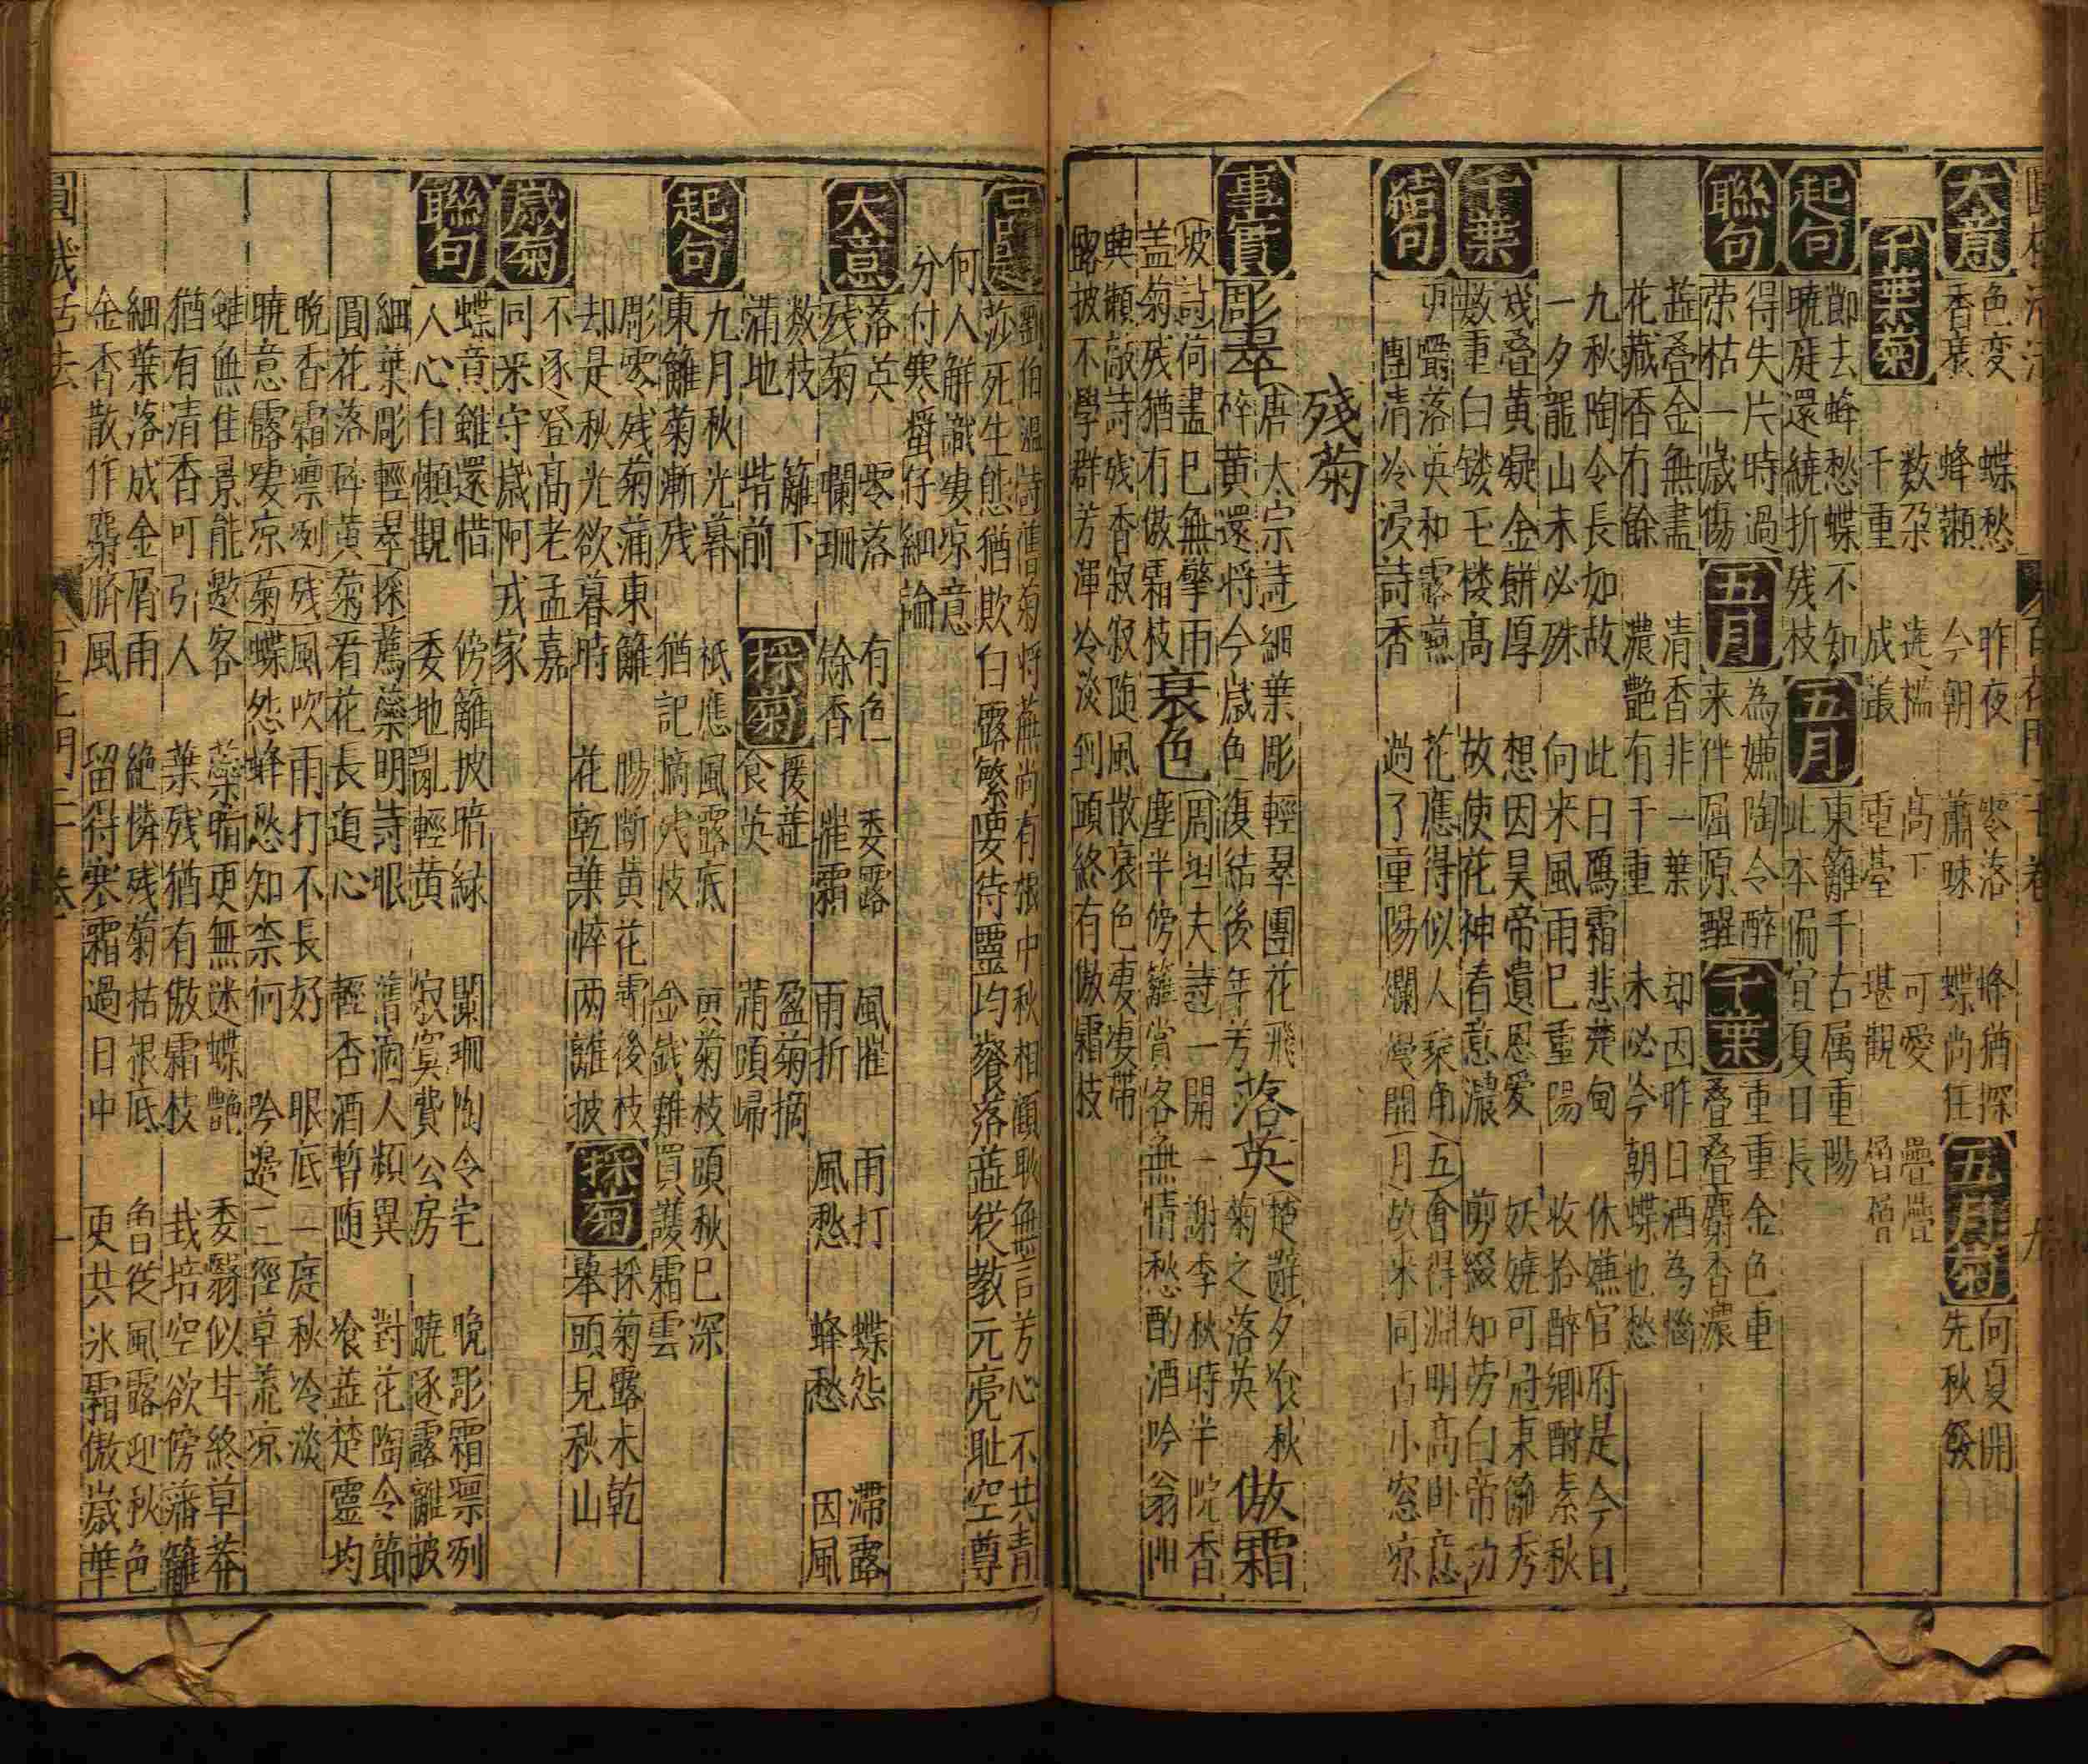 大意
色変 蝶愁 昨夜 零落 蜂猶探
香衰 蜂懶 今朝 蕭疎 蝶尚狂
五月菊
何夏開
先秋發
千葉菊
数朶 高下 可愛 疊疊
千重 成叢 重臺 堪觀 層層
起句
節去蜂愁蝶不知
曉庭還繞折残枝
五月
東籬千古属重陽
此本偏宜夏日長
聯句
得失片時過
荣枯一歳傷
五月
為嫌陶令醉
来伴屈原醒
千葉
重重金色重
疊疊麝香濃
蕋叠金無盡 清香非一葉 却因昨日酒為惱
花藏香有餘 濃艷有千重 未必今朝蝶也愁
九秋陶令長如故 此日鴈霜悲楚甸 休嫌官府是今日
一夕龍山未必殊 向来風雨已重陽 收拾醉鄉酧素秋
千葉
幾叠黄凝金餅厚 想因昊帝遺恩愛 妖嬈可冠東籬秀
数重白鏤玉楼高 故使花神着意濃 剪綴知劳白帝功
結句
更嚴落英和露燕 花應得似人乘角
團清冷浸詩香 過了重陽爛漫開
五月
會得淵明高卧意
故来同占小窓凉
残菊
事實
彫翠
唐太宗詩細葉彫輕翠團花飛
碎黄還将今歳色復結後年芳
落英
楚辭夕飡秋
菊之落英
傲霜
坡詩荷盡已無擎雨
盖菊残猶有傲霜枝
衰色
周坦夫詩一開一謝季秋時半院香
塵半傍籬賞客無情愁酌酒吟翁
興懶敲詩残香寂寂随風散衰色凄凄带
露披不學群芳渾冷淡到頭終有傲霜枝
品題
劉伯温詩舊菊将蕪尚有根中秋相顧耿無言芳心不共青
莎死生態猶欺白露繁要待靈均餐落蕋從教元亮耻空尊
何人解識凄凉意
分付寒螿仔細論
大意
落英 零落 有色 委露 風催 雨打 蝶怨 滯露
残菊 爛珊 餘香 催霜 雨折 風愁 蜂愁 因風
数枝 籬下
滿地 堦前
採菊
援蕋 盈菊摘
食英 滿頭歸
起句
九月秋光暮 祗應風露底 寅菊枝頭秋已深
東籬菊漸残 猶記摘残枝 金錢難買護霜雲
彫零残菊蒲東籬 腸斷黄花霜後枝
却是秋光欲暮時 花乾葉悴两離披
採菊
採菊露未乾
舉頭見秋山
歳菊
不逐登高老孟嘉
同来守歳阿戎家
聯句
蝶意雖還惜 傍籬披暗緑 闌珊陶令宅 晚彫霜禀冽
人心自懶觀 委地亂輕黄 寂寞費公房 曉逐露離披
細葉彫輕翠
圓花落碎黄
採菊
薦藥明詩眼 清酒人頻異 對花陶令節
看花長道心 輕香酒暫随 飡蕋楚靈均
晚香霜禀冽
曉意露凄凉
残菊
風吹雨打不長好 眼底一度秋冷淡
蝶怨蜂愁知柰何 吟邊三徑草荒凉
雖無佳景能邀客 藥暗更無迷蝶艷 委翳似甘終草莽
猶有清香可引人 葉残猶有傲霜枝 栽培空欲傍藩籬
細葉落成金屑雨 絶憐残菊枯根底 魯從風露迎秋色
金香散作麝臍風 留得寒霜過日中 更共氷霜傲歳華
圓機活法 百花門二十卷